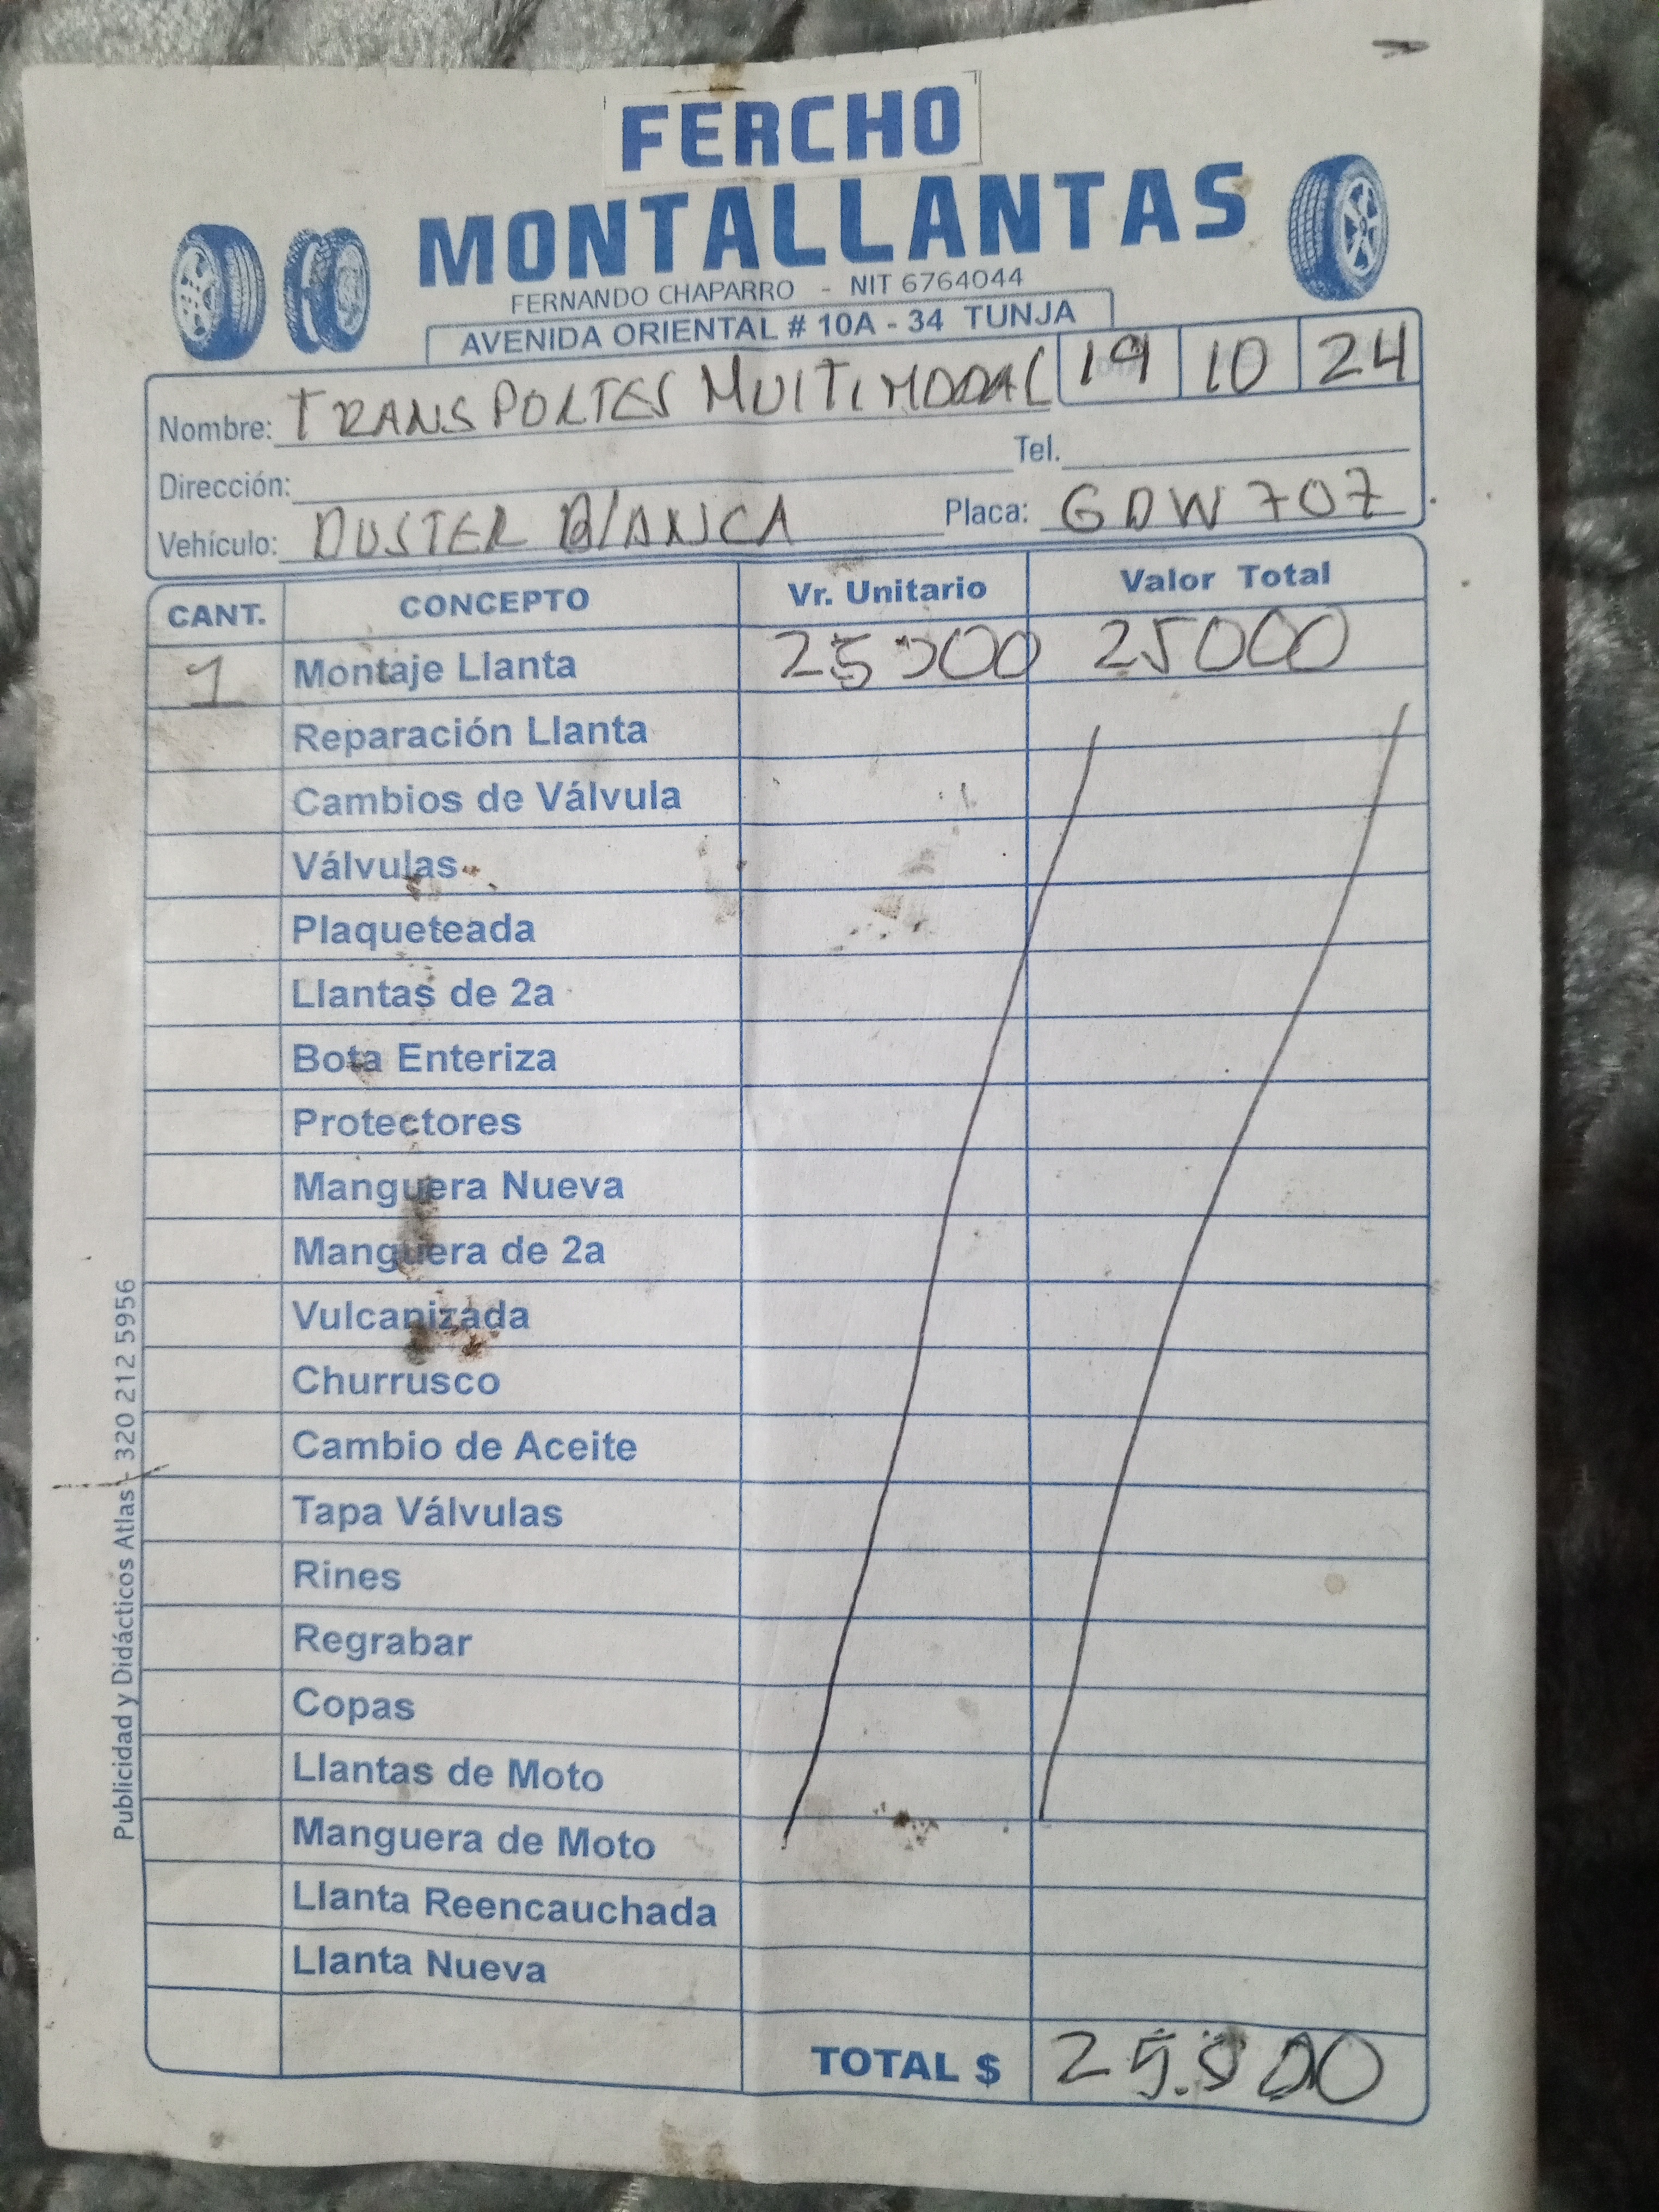 FERCHO
MONTALLANTAS
FERNANDO CHAPARRO - NIT 6764044
AVENIDA ORIENTAL # 10A - 34 TUNJA
19 10 24
Nombre: TRANSPORTES MULTIMODAL
Dirección: Tel.
Vehículo: DUSTER BlANCA Placa: GDW707
CANT. CONCEPTO Vr. Unitario Valor Total
1 Montaje Llanta 25000 25000
Reparación Llanta
Cambios de Válvula
Válvulas
Plaqueteada
Llantas de 2a
Bota Enteriza
Protectores
Manguera Nueva
Manguera de 2a
Vulcanizada
Churrusco
Cambio de Aceite
Tapa Válvulas
Rines
Regrabar
Copas
Llantas de Moto
Manguera de Moto
Llanta Reencauchada
Llanta Nueva
TOTAL $ 25.000
Publicidad y Didácticos Atlas - 320 212 5956